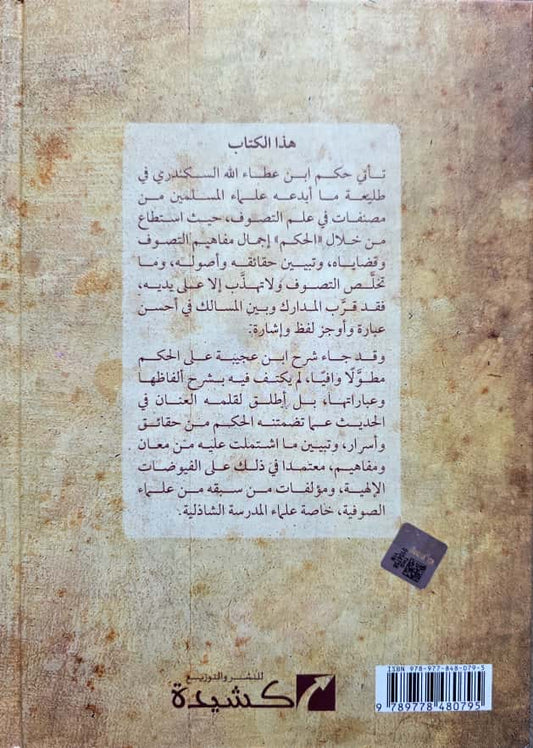 هذا الكتاب
تأتي حكم ابن عطاء الله السكندري في
طليعة ما أبدعه علماء المسلمين من
مصنفات في علم التصوف، حيث استطاع
من خلال «الحكم» إجمال مفاهيم التصوف
وقضاياه، وتبيين حقائقه وأصوله، وما
تخلّص التصوف ولا تهذّب إلا على يديه،
فقد قرّب المدارك وبين المسالك في أحسن
عبارة وأوجز لفظ وإشارة.
وقد جاء شرح ابن عجيبة على الحكم
مطوّلًا وافيًا، لم يكتف فيه بشرح ألفاظها
وعباراتها، بل أطلق لقلمه العنان في
الحديث عما تضمنته الحكم من حقائق
وأسرار، وتبيين ما اشتملت عليه من معان
ومفاهيم، معتمدا في ذلك على الفيوضات
الإلهية، ومؤلفات من سبقه من علماء
الصوفية، خاصة علماء المدرسة الشاذلية.
للنشر والتوزيع
كشيدة
ISBN 978-977-848-079-5
9 789778 480795